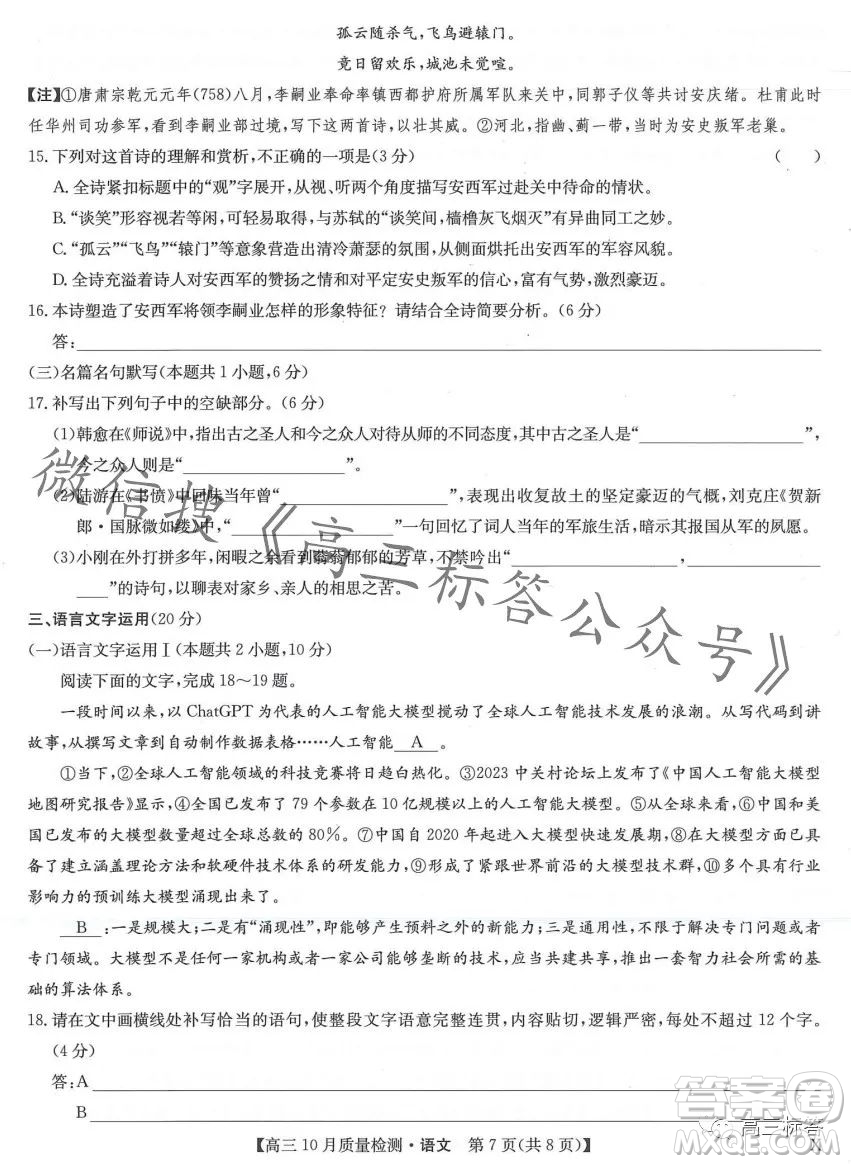 孤云随杀气,飞鸟避辕门。
竟日留欢乐,城池未觉喧。
【注】①唐肃宗乾元元年(758)八月,李嗣业奉命率镇西都护府所属军队来关中,同郭子仪等共讨安庆绪。杜甫此时
任华州司功参军,看到李嗣业部过境,写下这两首诗,以壮其威。②河北,指幽、蓟一带,当时为安史叛军老巢。
15.下列对这首诗的理解和赏析,不正确的一项是(3分) ( )
A.全诗紧扣标题中的“观”字展开,从视、听两个角度描写安西军过赴关中待命的情状。
B.“谈笑”形容视若等闲,可轻易取得,与苏轼的“谈笑间,樯橹灰飞烟灭”有异曲同工之妙。
C.“孤云”“飞鸟”“辕门”等意象营造出清冷萧瑟的氛围,从侧面烘托了安西军的军容风貌。
D.全诗洋溢着诗人对安西军的赞扬之情和对平定安史叛军的信心,富有气势,激烈豪迈。
16.本诗塑造了安西军将领李嗣业怎样的形象特征?请结合全诗简要分析。(6分)
答:
(三)名篇名句默写(本题共1小题,6分)
17.补写出下列句子中的空缺部分。(6分)
(1)韩愈在《师说》中,指出古之圣人和今之众人对待从师的不同态度,其中古之圣人是“____”,
今之众人则是“____”。
(2)陆游在《书愤》中回味当年曾“____”,表现出收复故土的坚定豪迈的气概,刘克庄《贺新
郎·国脉微如缕》中,“____”一句回忆了词人当年的军旅生活,暗示其报国从军的夙愿。
(3)小刚在外打拼多年,闲暇之余看到蓊蓊郁郁的芳草,不禁吟出“____,____
____”的诗句,以聊表对家乡、亲人的相思之苦。
三、语言文字运用(20分)
(一)语言文字运用Ⅰ(本题共2小题,10分)
阅读下面的文字,完成18~19题。
一段时间以来,以ChatGPT为代表的人工智能大模型搅动了全球人工智能技术发展的浪潮。从写代码到讲
故事,从撰写文章到自动制作数据表格……人工智能 A 。
①当下,②全球人工智能领域的科技竞赛将日趋白热化。③2023中关村论坛上发布了《中国人工智能大模型
地图研究报告》显示,④全国已发布了79个参数在10亿规模以上的人工智能大模型。⑤从全球来看,⑥中国和美
国已发布的大模型数量超过全球总数的80%。⑦中国自2020年起进入大模型快速发展期,⑧在大模型方面已具
备了建立涵盖理论方法和软硬件技术体系的研发能力,⑨形成了紧跟世界前沿的大模型技术群,⑩多个具有行业
影响力的预训练大模型涌现出来。
B :一是规模大;二是有“涌现性”,即能够产生预料之外的新能力;三是通用性,不局限于解决专门问题或者
专门领域。大模型不是任何一家机构或者一家企业能够垄断的技术,在共建共享中,它将推动出一套智力社会所需的基
础的算法体系。
18.请在文中画横线处补写恰当的语句,使整段文字语意完整连贯,内容贴切,逻辑严密,每处不超过12个字。
(4分)
答:A
B
【高三10月质量检测·语文 第7页(共8页)】
X
微信搜《高三标答公众号》
答案圈
高三标答
MXQE.COM